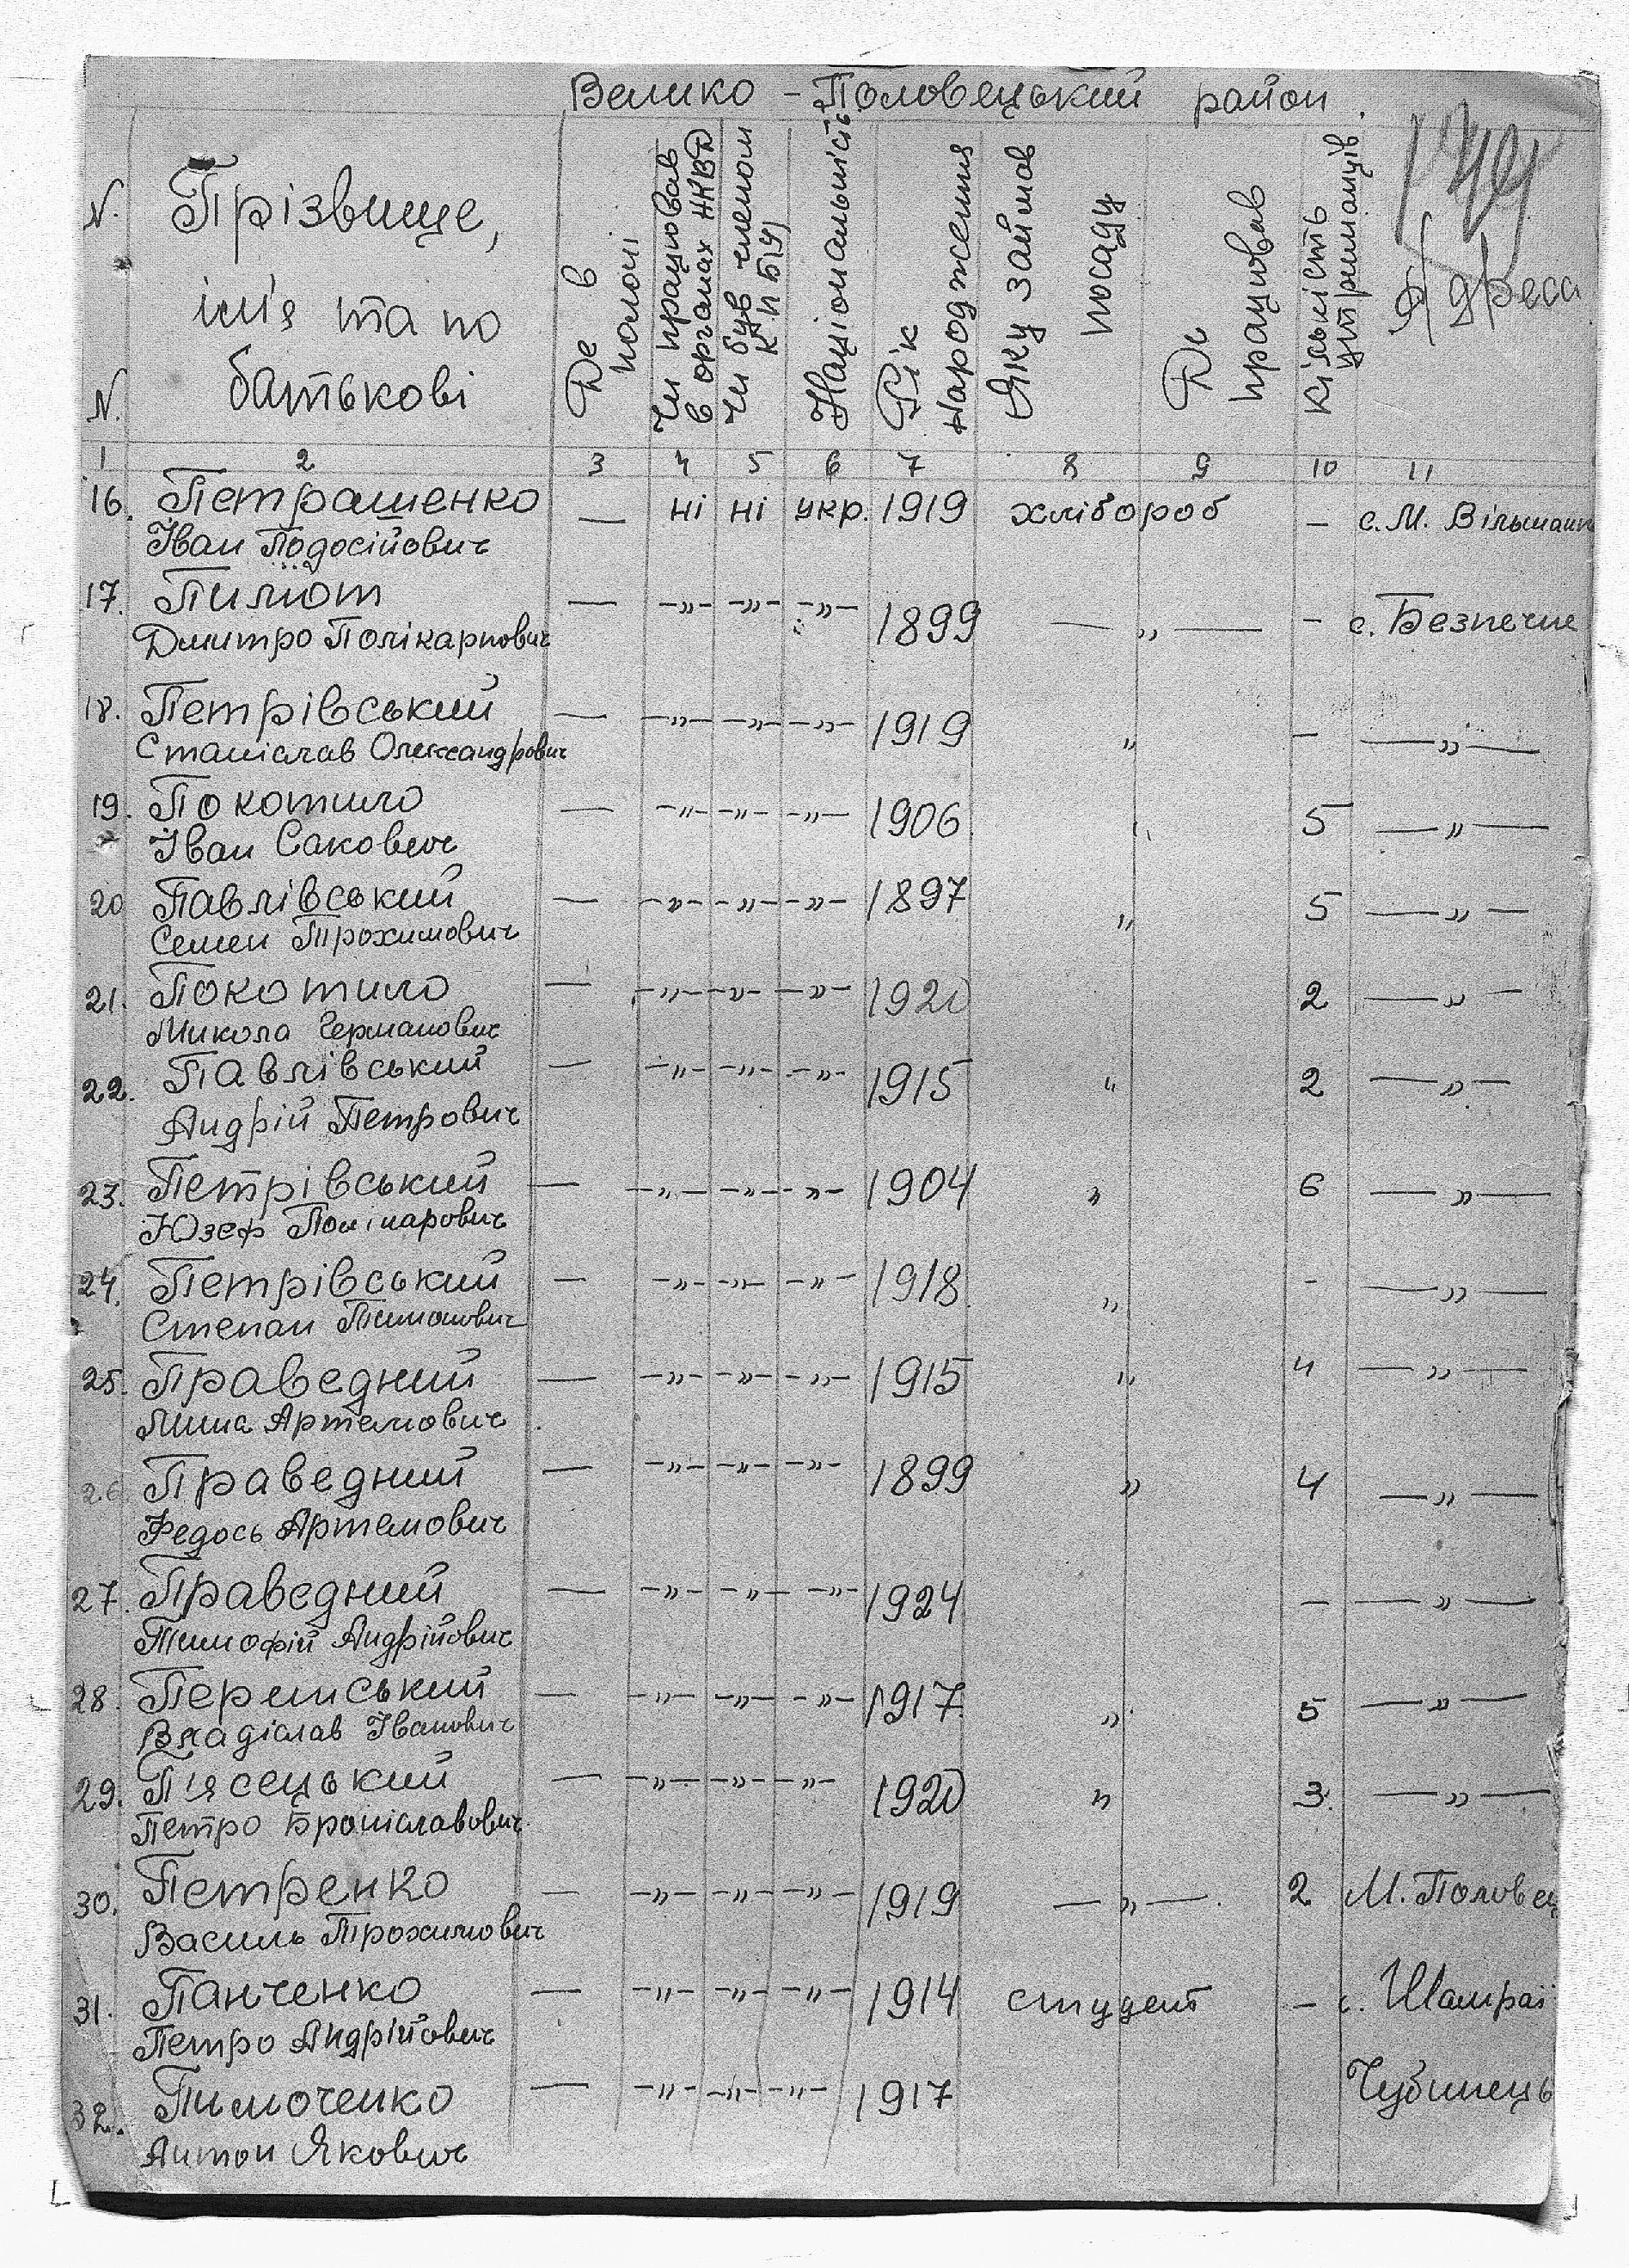 Велико - Половецький район.
N. N. Прізвище, ім'я та по батькові Де в полоні Чи працював в органах НКВД Чи був членом КП(б)У Національність Рік народження Яку займав посаду Де працював Кількість утриманців Адреса
1 2 3 4 5 6 7 8 9 10 11
16. Петрашенко — ні ні укр. 1919 хлібороб – с. М. Вільшанк
Іван
17. Пилют — -"- -"- -"- 1899 — " — – с. Безпечне
Дмитро Полікарпович
18. Петрівський — -"- -"- -"- 1919 " – — " —
Станіслав Олександрович
19. Покотило — -"- -"- -"- 1906 " 5 — " —
Іван Сакович
20 Павлівський — -"- -"- -"- 1897 " 5 — " —
Семен Трохимович
21. Покотило — -"- -"- -"- 1920 2 — " —
Микола Германович
22. Павлівський — -"- -"- -"- 1915 " 2 — " —
Андрій Петрович
23. Петрівський — -"- -"- -"- 1904 " 6 — " —
Юзеф
24. Петрівський — -"- -"- -"- 1918 " - — " —
Степан
25. Праведний — -"- -"- -"- 1915 " 4 — " —
Миша Артемович
26 Праведний — -"- -"- -"- 1899 " 4 — " —
Федось Артемович
27. Праведний — -"- -"- -"- 1924 – — " —
Тимофій Андрійович
28. — -"- -"- -"- 1917 " 5 — " —
Владіслав Іванович
29. П'ясецький — -"- -"- -"- 1920 " 3. — " —
Петро Броніславович
30. Петренко — -"- -"- -"- 1919 — " — 2 М. Половец
Василь Трохимович
31. Панченко — -"- -"- -"- 1914 студент – с. Шамраї
Петро Андрійович
32. Пимоченко — -"- -"- -"- 1917 Чубинець
Антон Якович